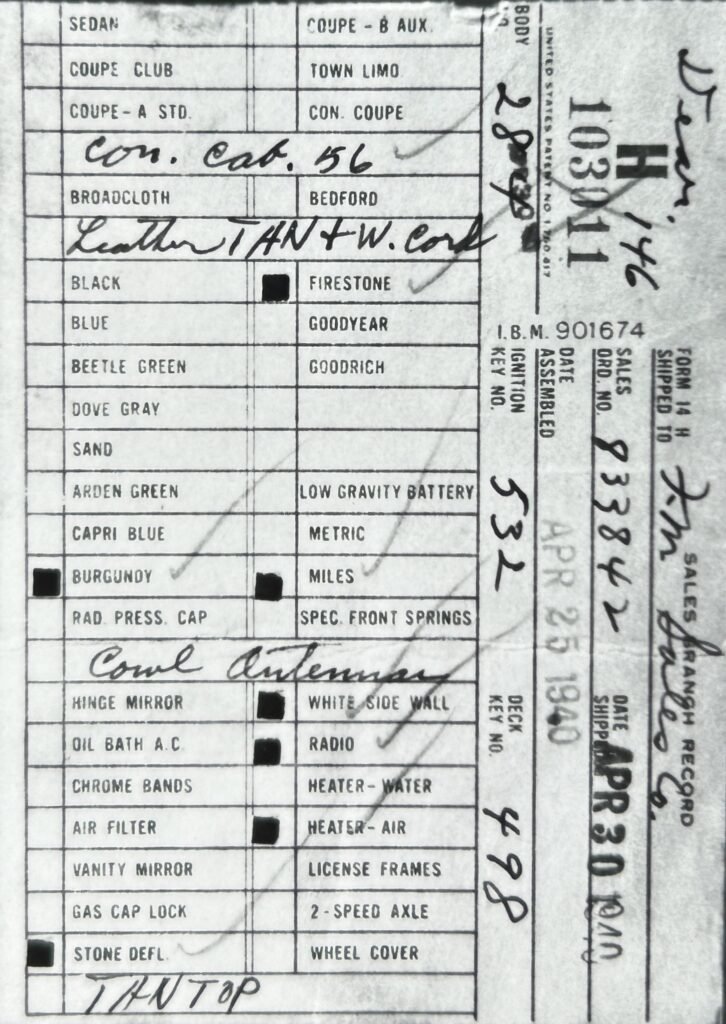 SEDAN COUPE - B AUX.
COUPE CLUB TOWN LIMO
COUPE - A STD. CON. COUPE
Con. Cab. 56
BROADCLOTH BEDFORD
Leather TAN + W. Cord
BLACK FIRESTONE
BLUE GOODYEAR
BEETLE GREEN GOODRICH
DOVE GRAY
SAND
ARDEN GREEN LOW GRAVITY BATTERY
CAPRI BLUE METRIC
BURGUNDY MILES
RAD. PRESS. CAP SPEC. FRONT SPRINGS
Cowl Antenna
HINGE MIRROR WHITE SIDE WALL
OIL BATH A.C. RADIO
CHROME BANDS HEATER - WATER
AIR FILTER HEATER - AIR
VANITY MIRROR LICENSE FRAMES
GAS CAP LOCK 2 - SPEED AXLE
STONE DEFL. WHEEL COVER
TAN TOP
146
H
103011
UNITED STATES PATENT NO.
BODY NO.
I.B.M. 901674
SALES BRANCH RECORD
FORM 14 H
SHIPPED TO Sales Co.
SALES ORD. NO. 833842
DATE SHIPP APR 30 1940
DATE ASSEMBLED APR 25 1940
IGNITION KEY NO. 532
DECK KEY NO. 498